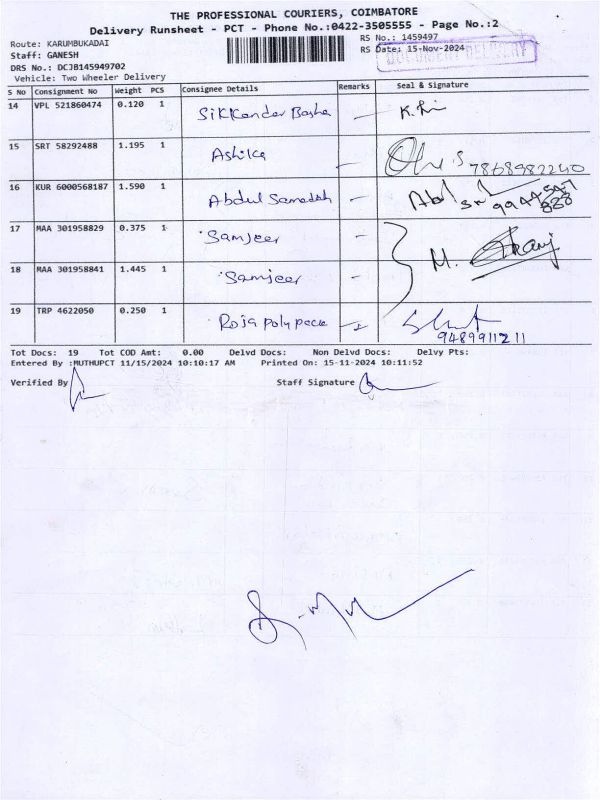 THE PROFESSIONAL COURIERS, COIMBATORE
Delivery Runsheet - PCT - Phone No.:0422-3505555 - Page No.:2
Route: KARUMBUKADAI
RS No.: 1459497
Staff: GANESH
RS Date: 15-Nov-2024
DOCUMENT DELIVERY
DRS No.: DCJB145949702
Vehicle: Two Wheeler Delivery
S No Consignment No Weight PCS Consignee Details Remarks Seal & Signature
14 VPL 521860474 0.120 1 Sikkander Basha
15 SRT 58292488 1.195 1 Ashika 7868982240
16 KUR 6000568187 1.590 1 Abdul Samadah
17 MAA 301958829 0.375 1 Samjeer
18 MAA 301958841 1.445 1 Samjeer
19 TRP 4622050 0.250 1 Roja poly pack
9489911211
Tot Docs: 19 Tot COD Amt: 0.00 Delvd Docs: Non Delvd Docs: Delvy Pts:
Entered By :MUTHUPCT 11/15/2024 10:10:17 AM Printed On: 15-11-2024 10:11:52
Verified By Staff Signature